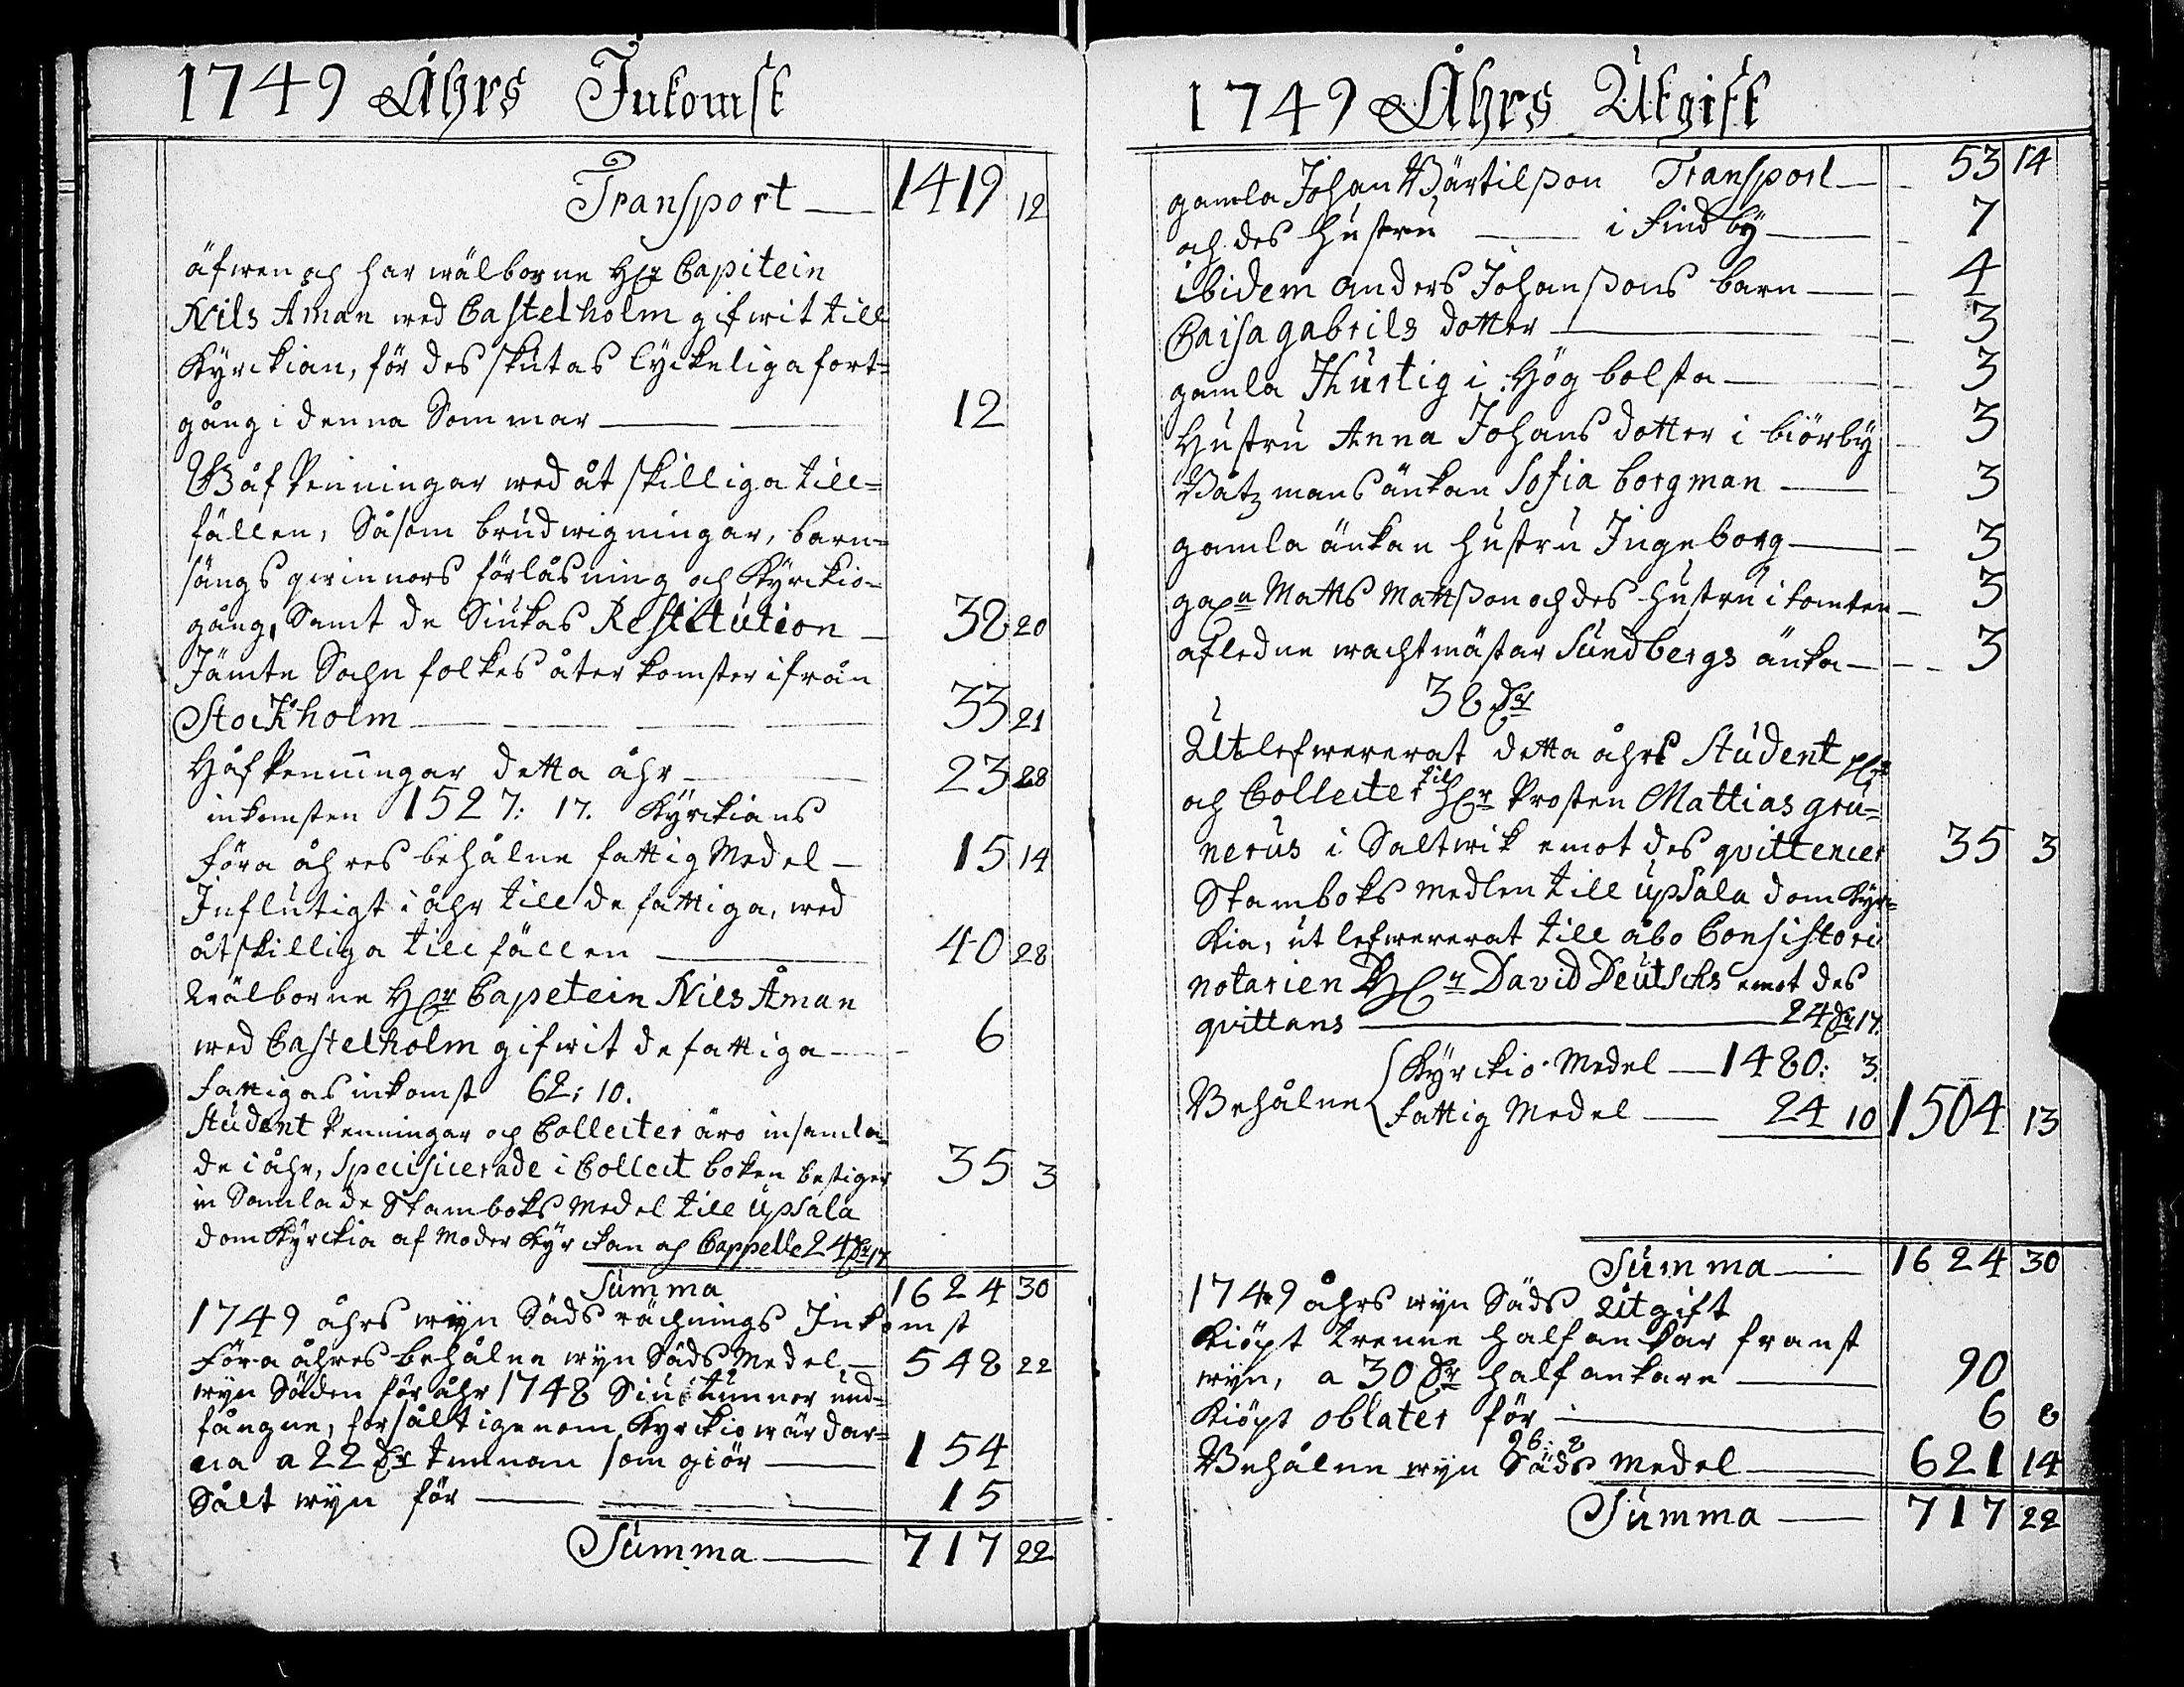 1749 Åhrs Inkomst
Transport — 1419 12
äfwen och har wälborne Hr Capitein
Nils Åman wed Castelholm gifwit till
Kyrckian, för des skutas lyckeliga fort=
gång i denna Sommar — 12
Håf Penningar wed åtskilliga till=
fällen, Såsom brudwigningar, barn=
sängs qwinnors förlåsning och Kyrckio-
gång, Samt de Siukas Restitution — 38 20
Jämte Sochn folkes återkomster ifrån
Stockholm — 33 21
Håfpenningar detta åhr — 23 28
inkomsten 1527: 17. Kyrckians
Föra åhres behålne fattig Medel — 15 14
Influtigt i åhr till de fattiga, wed
åtskilliga tillfällen — 40 28
Wälborne Hr Capetein Nils Åman
wed Castelholm gifwit de fattiga — 6
fattigas inkomst 62: 10.
Student Penningar och Collecter äro insamla=
de i åhr, Specificerade i Collect boken bestiger 35 3
in Samlade Stamboks Medel till Upsala
domKyrckia af moder Kyrckan och Cappelle 24 Dr 17
Summa 1624 30
1749 åhrs wyn Säds rächnings Inkomst
Föra åhres behålne wyn Säds Medel — 548 22
wyn Säden för åhr 1748 Siu tunnor und=
fångne, försålt igenom Kyrckio wärdar=
na a 22 Dr tunnan som giör — 154
Sålt wyn för — 15
Summa — 717 22
1749 Åhrs Utgift
gamla Johan Bärtilßon Transport — 53 14
och des hustru — i Findby — 7
ibidem Anders Johanßons barn — 4
Caisa gabrils dotter — 3
gamla Thurtig i Högbolsta — 3
Hustru Anna Johans dotter i biörby — 3
Båtzmans änkan Sofia borgman — 3
gamla änkan hustru Ingeborg — 3
Matts Mattßon och des hustru i tomten — 3
afledne wachtmästar Sundbergs änka — 3
38 Dr
Utlefwererat detta åhrs Student
och Collecter til Hr Prosten Mattias gru=
nerus i Saltwik emot des qvittencer 35 3
Stamboks medlen till Upsala domKyr=
kia, utlefwererat till åbo Consistorii
notarien Hr David Deutschs emot des
qvittans — 24 Dr 17.
Kyrckio Medel — 1480: 3.
Behålne fattig Medel — 24 10 1504 13
Summa — 1624 30
1749 åhrs wyn Säds Utgift
Kiöpt trenne halfankar franst
wyn, a 30 Dr halfankare — 90
Kiöpt oblater för — 6 8
96: 8
Behålne wyn Säds medel — 621 14
Summa — 717 22